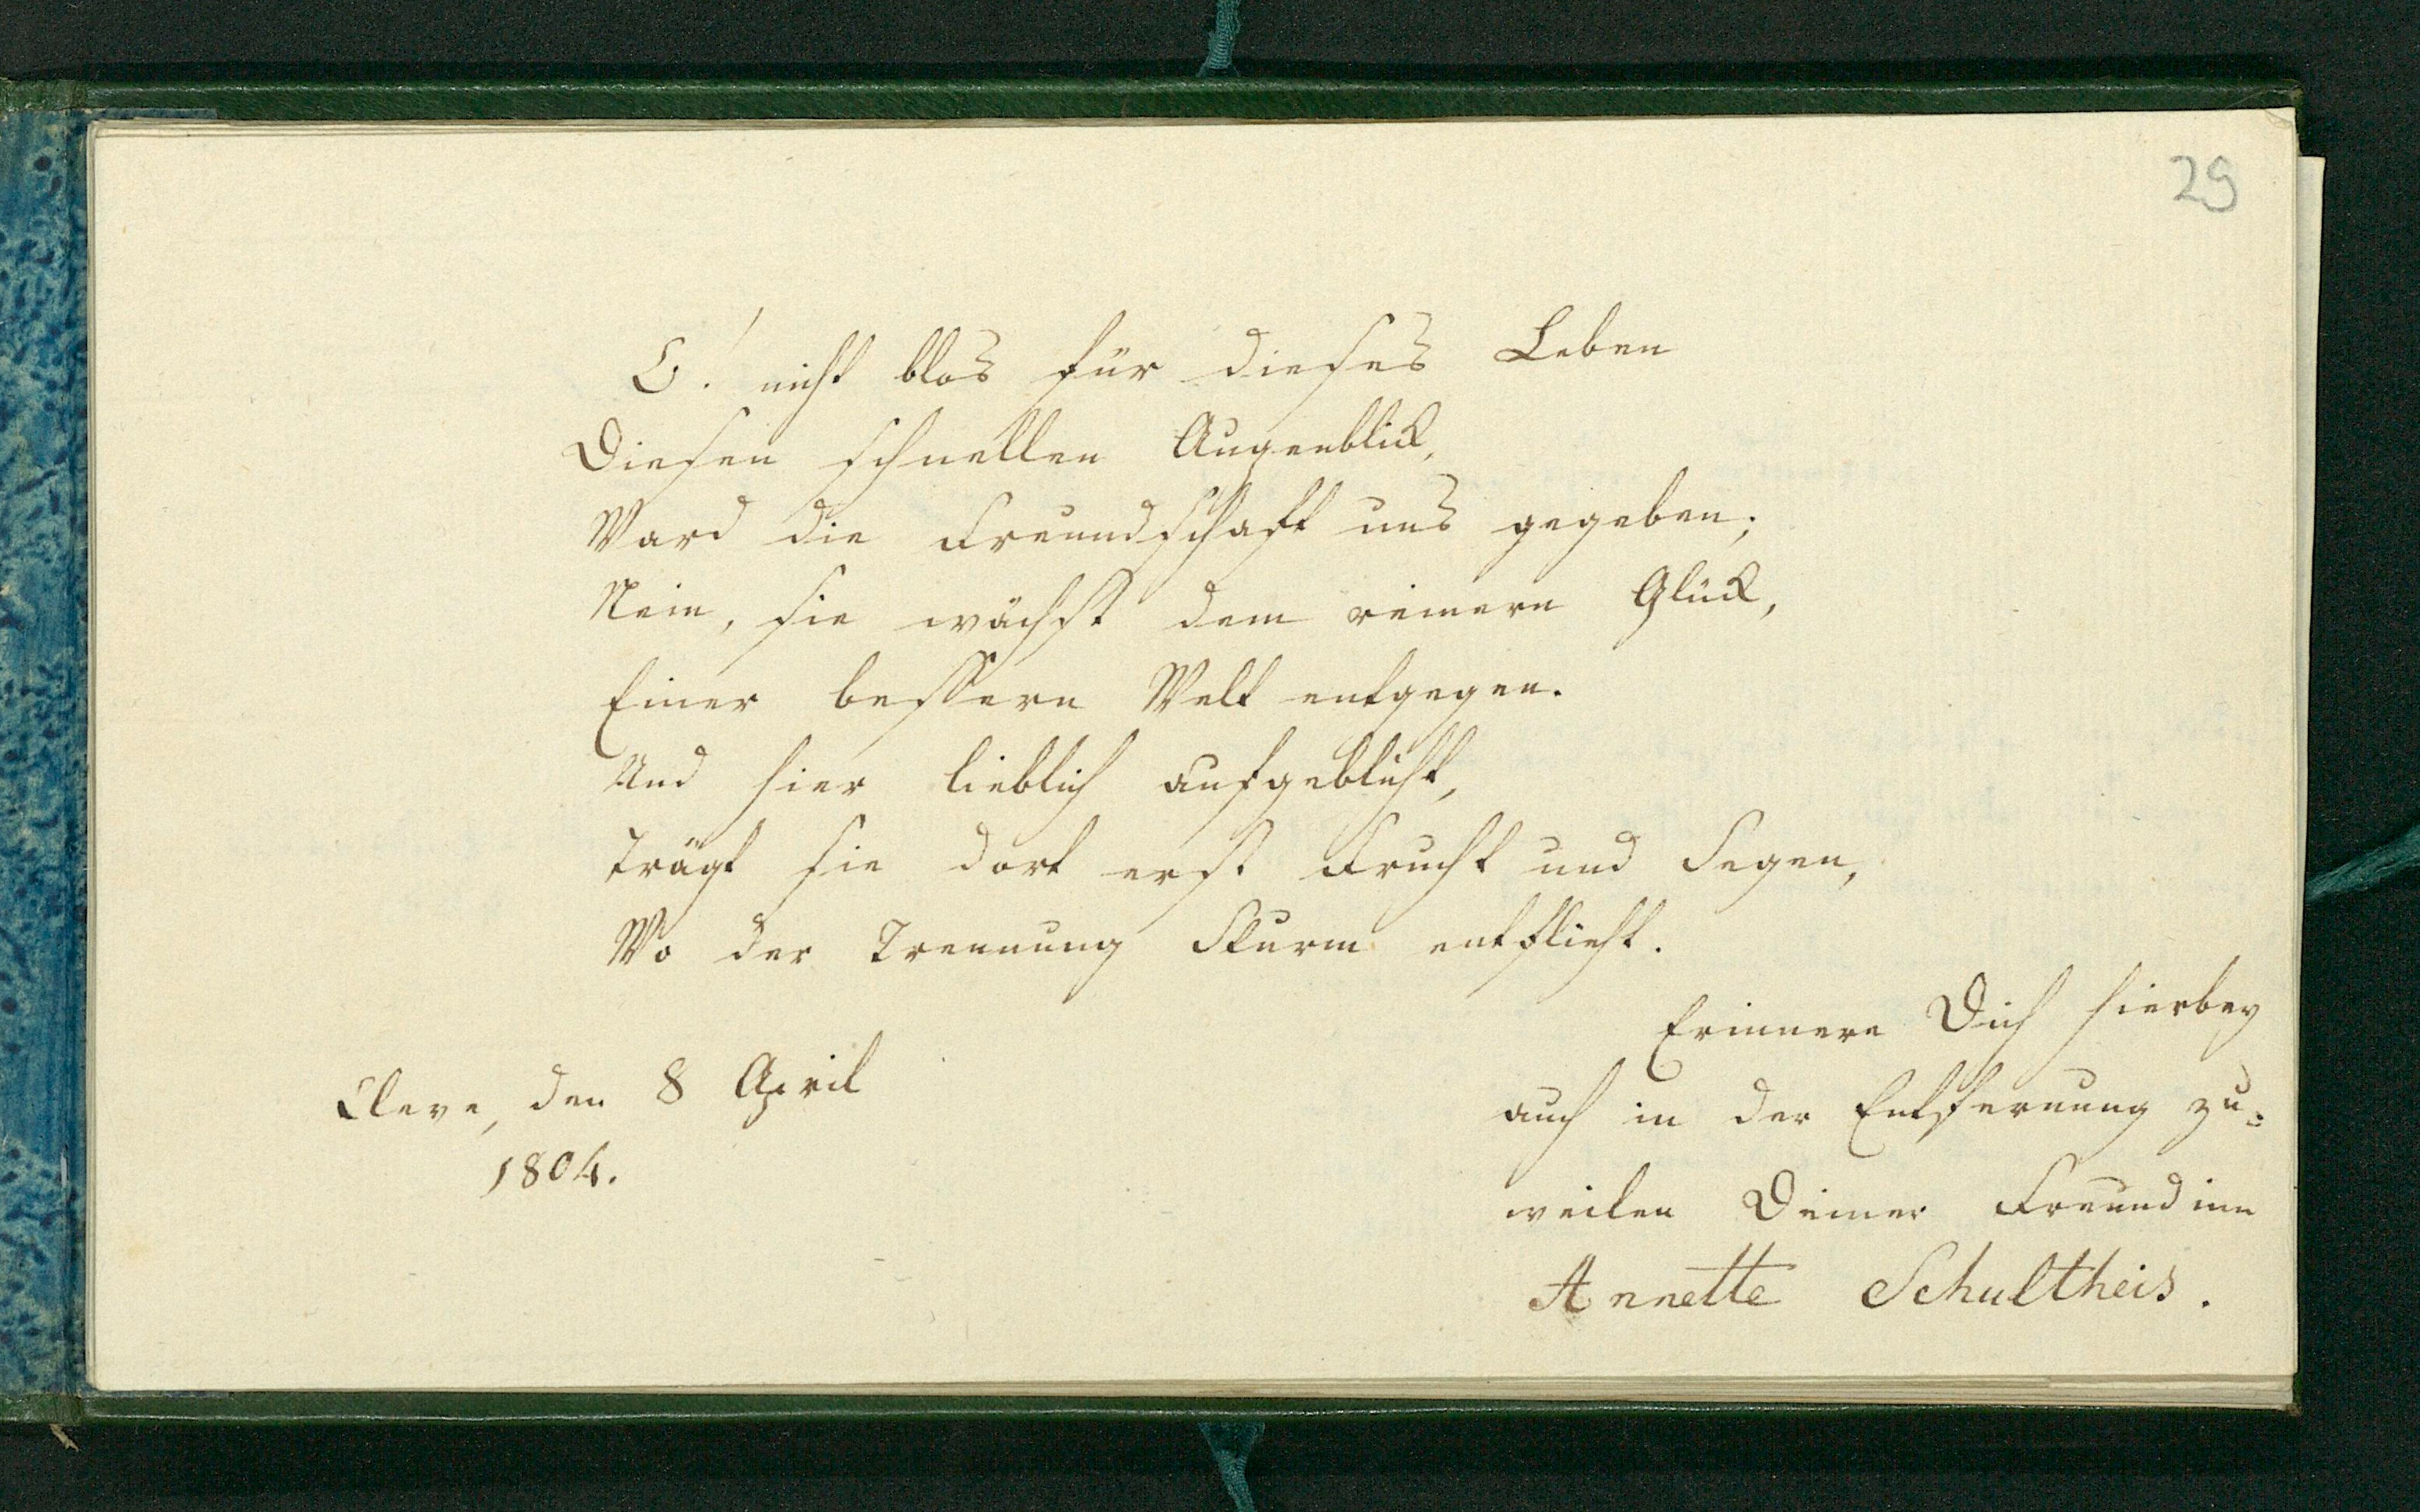 29
O! nicht blos für dieses Leben
Diesen schnellen Augenblick,
Ward die Freundschaft uns gegeben;
Nein, sie wächst dem reinern Glück,
Einer bessern Welt entgegen.
Und hier lieblich aufgeblüht,
Trägt sie dort erst Frucht und Segen,
Wo der Trennung Sturm entflieht.
Cleve, den 8 April
1804.
Erinnere Dich hierbey
auch in der Entfernung zu=
weilen Deiner Freundinn
Annette Schultheis.